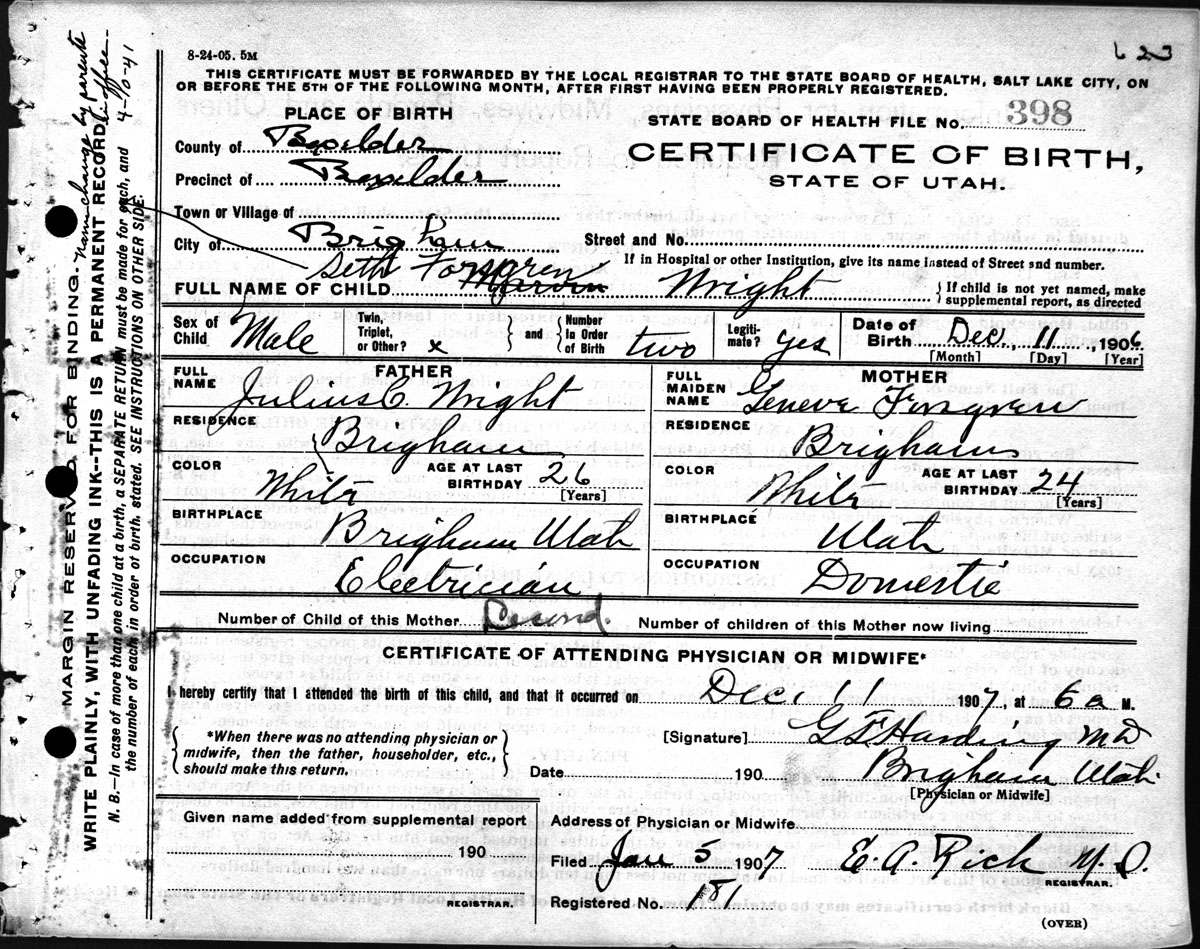 8-24-05. 5M
623
THIS CERTIFICATE MUST BE FORWARDED BY THE LOCAL REGISTRAR TO THE STATE BOARD OF HEALTH, SALT LAKE CITY, ON
OR BEFORE THE 5TH OF THE FOLLOWING MONTH, AFTER FIRST HAVING BEEN PROPERLY REGISTERED.
PLACE OF BIRTH
County of Boxelder
Precinct of Boxelder
Town or Village of
City of Brigham
STATE BOARD OF HEALTH FILE No. 398
CERTIFICATE OF BIRTH,
STATE OF UTAH.
Street and No.
If in Hospital or other Institution, give its name instead of Street and number.
Seth Forsgren
FULL NAME OF CHILD Marvin Wright
If child is not yet named, make
supplemental report, as directed
Sex of Child Male
Twin, Triplet, or Other? x
and Number In Order of Birth two
Legiti-mate? yes
Date of Birth Dec. 11, 1906
[Month] [Day] [Year]
FATHER
FULL NAME Julius C. Wright
RESIDENCE Brigham
COLOR White
AGE AT LAST BIRTHDAY 26
[Years]
BIRTHPLACE Brigham Utah
OCCUPATION Electrician
MOTHER
FULL MAIDEN NAME Geneve Forsgren
RESIDENCE Brigham
COLOR White
AGE AT LAST BIRTHDAY 24
[Years]
BIRTHPLACE Utah
OCCUPATION Domestic
Number of Child of this Mother Second.
Number of children of this Mother now living
CERTIFICATE OF ATTENDING PHYSICIAN OR MIDWIFE*
I hereby certify that I attended the birth of this child, and that it occurred on Dec. 11 1907, at 6 a M.
*When there was no attending physician or
midwife, then the father, householder, etc.,
should make this return.
[Signature] G F Harding MD
Date 190 Brigham Utah
[Physician or Midwife]
Given name added from supplemental report
190
REGISTRAR.
Address of Physician or Midwife
Filed Jan 5 1907 E. A. Rich M. D.
REGISTRAR.
Registered No. 181
(OVER)
MARGIN RESERVED FOR BINDING.
WRITE PLAINLY, WITH UNFADING INK--THIS IS A PERMANENT RECORD
N. B.—In case of more than one child at a birth, a SEPARATE RETURN must be made for each, and
the number of each, in order of birth, stated. SEE INSTRUCTIONS ON OTHER SIDE.
Name change by parents
in office--
4-10-41